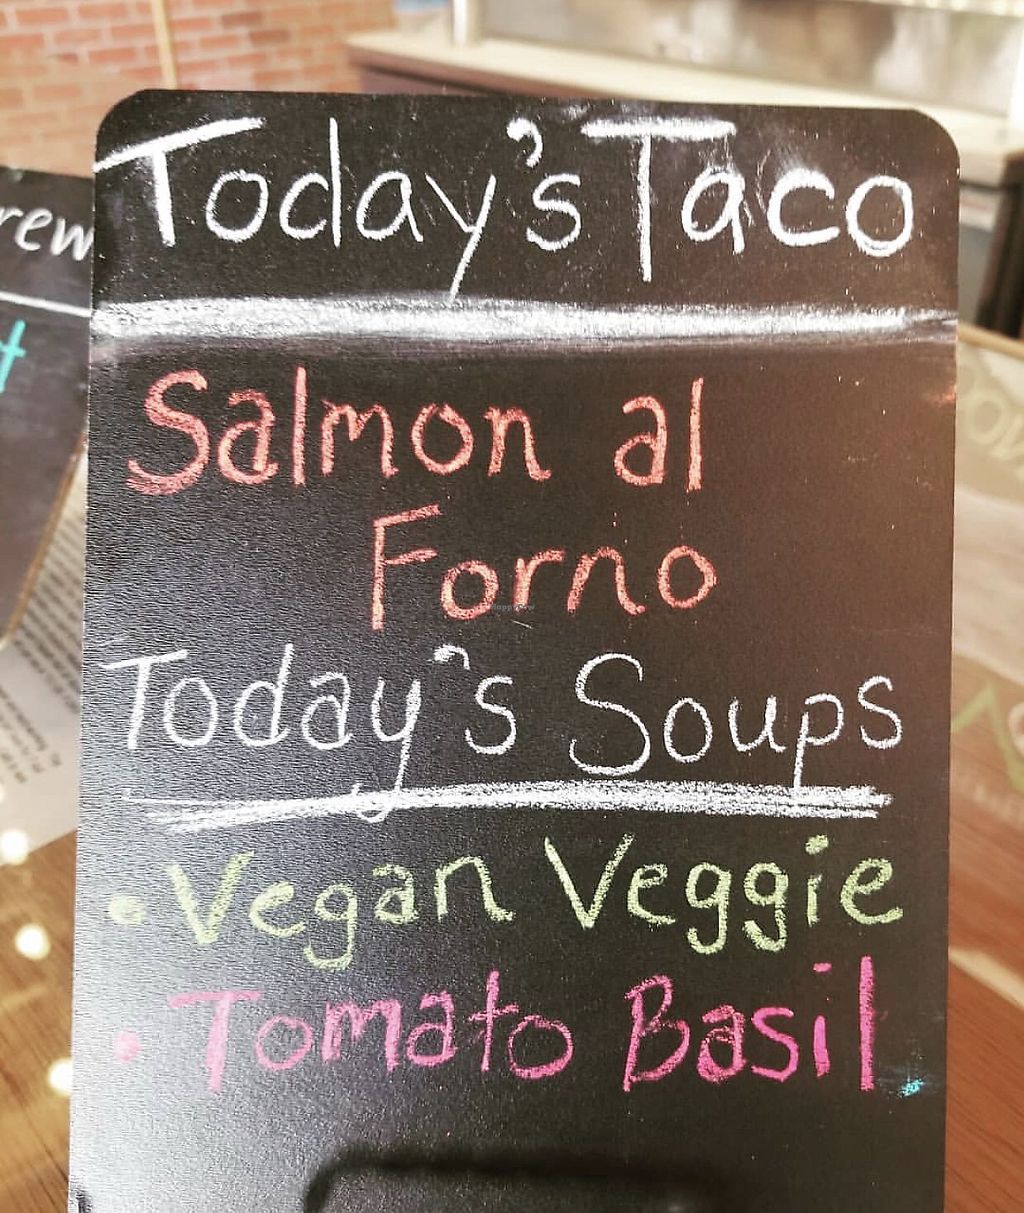 Today's Taco
Salmon al
Forno
Today's Soups
• Vegan Veggie
• Tomato Basil
rew